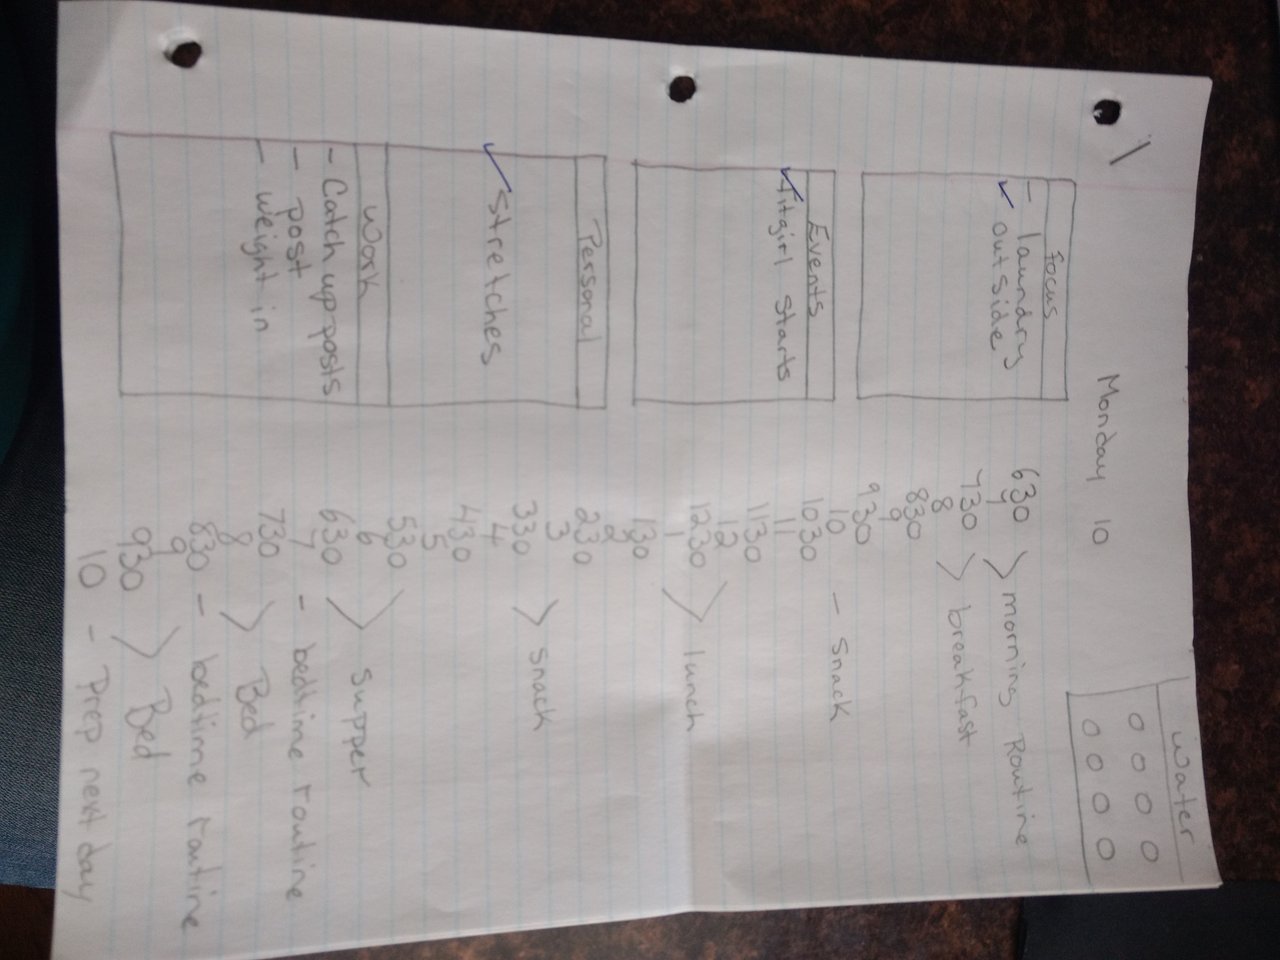 Monday 10
Water
Focus
- laundry
✓ outside
Events
✓ fitgirl starts
Personal
✓ stretches
Work
- Catch up posts
- post
- weight in
630
7 > morning Routine
730
8 > breakfast
830
9
930
10 - snack
1030
11
1130
12
1230 > lunch
1
130
2
230
3
330 > snack
4
430
5
530
6 > supper
630
7 - bedtime routine
730
8 > Bed
830 - bedtime routine
9
930 > Bed
10 - Prep next day